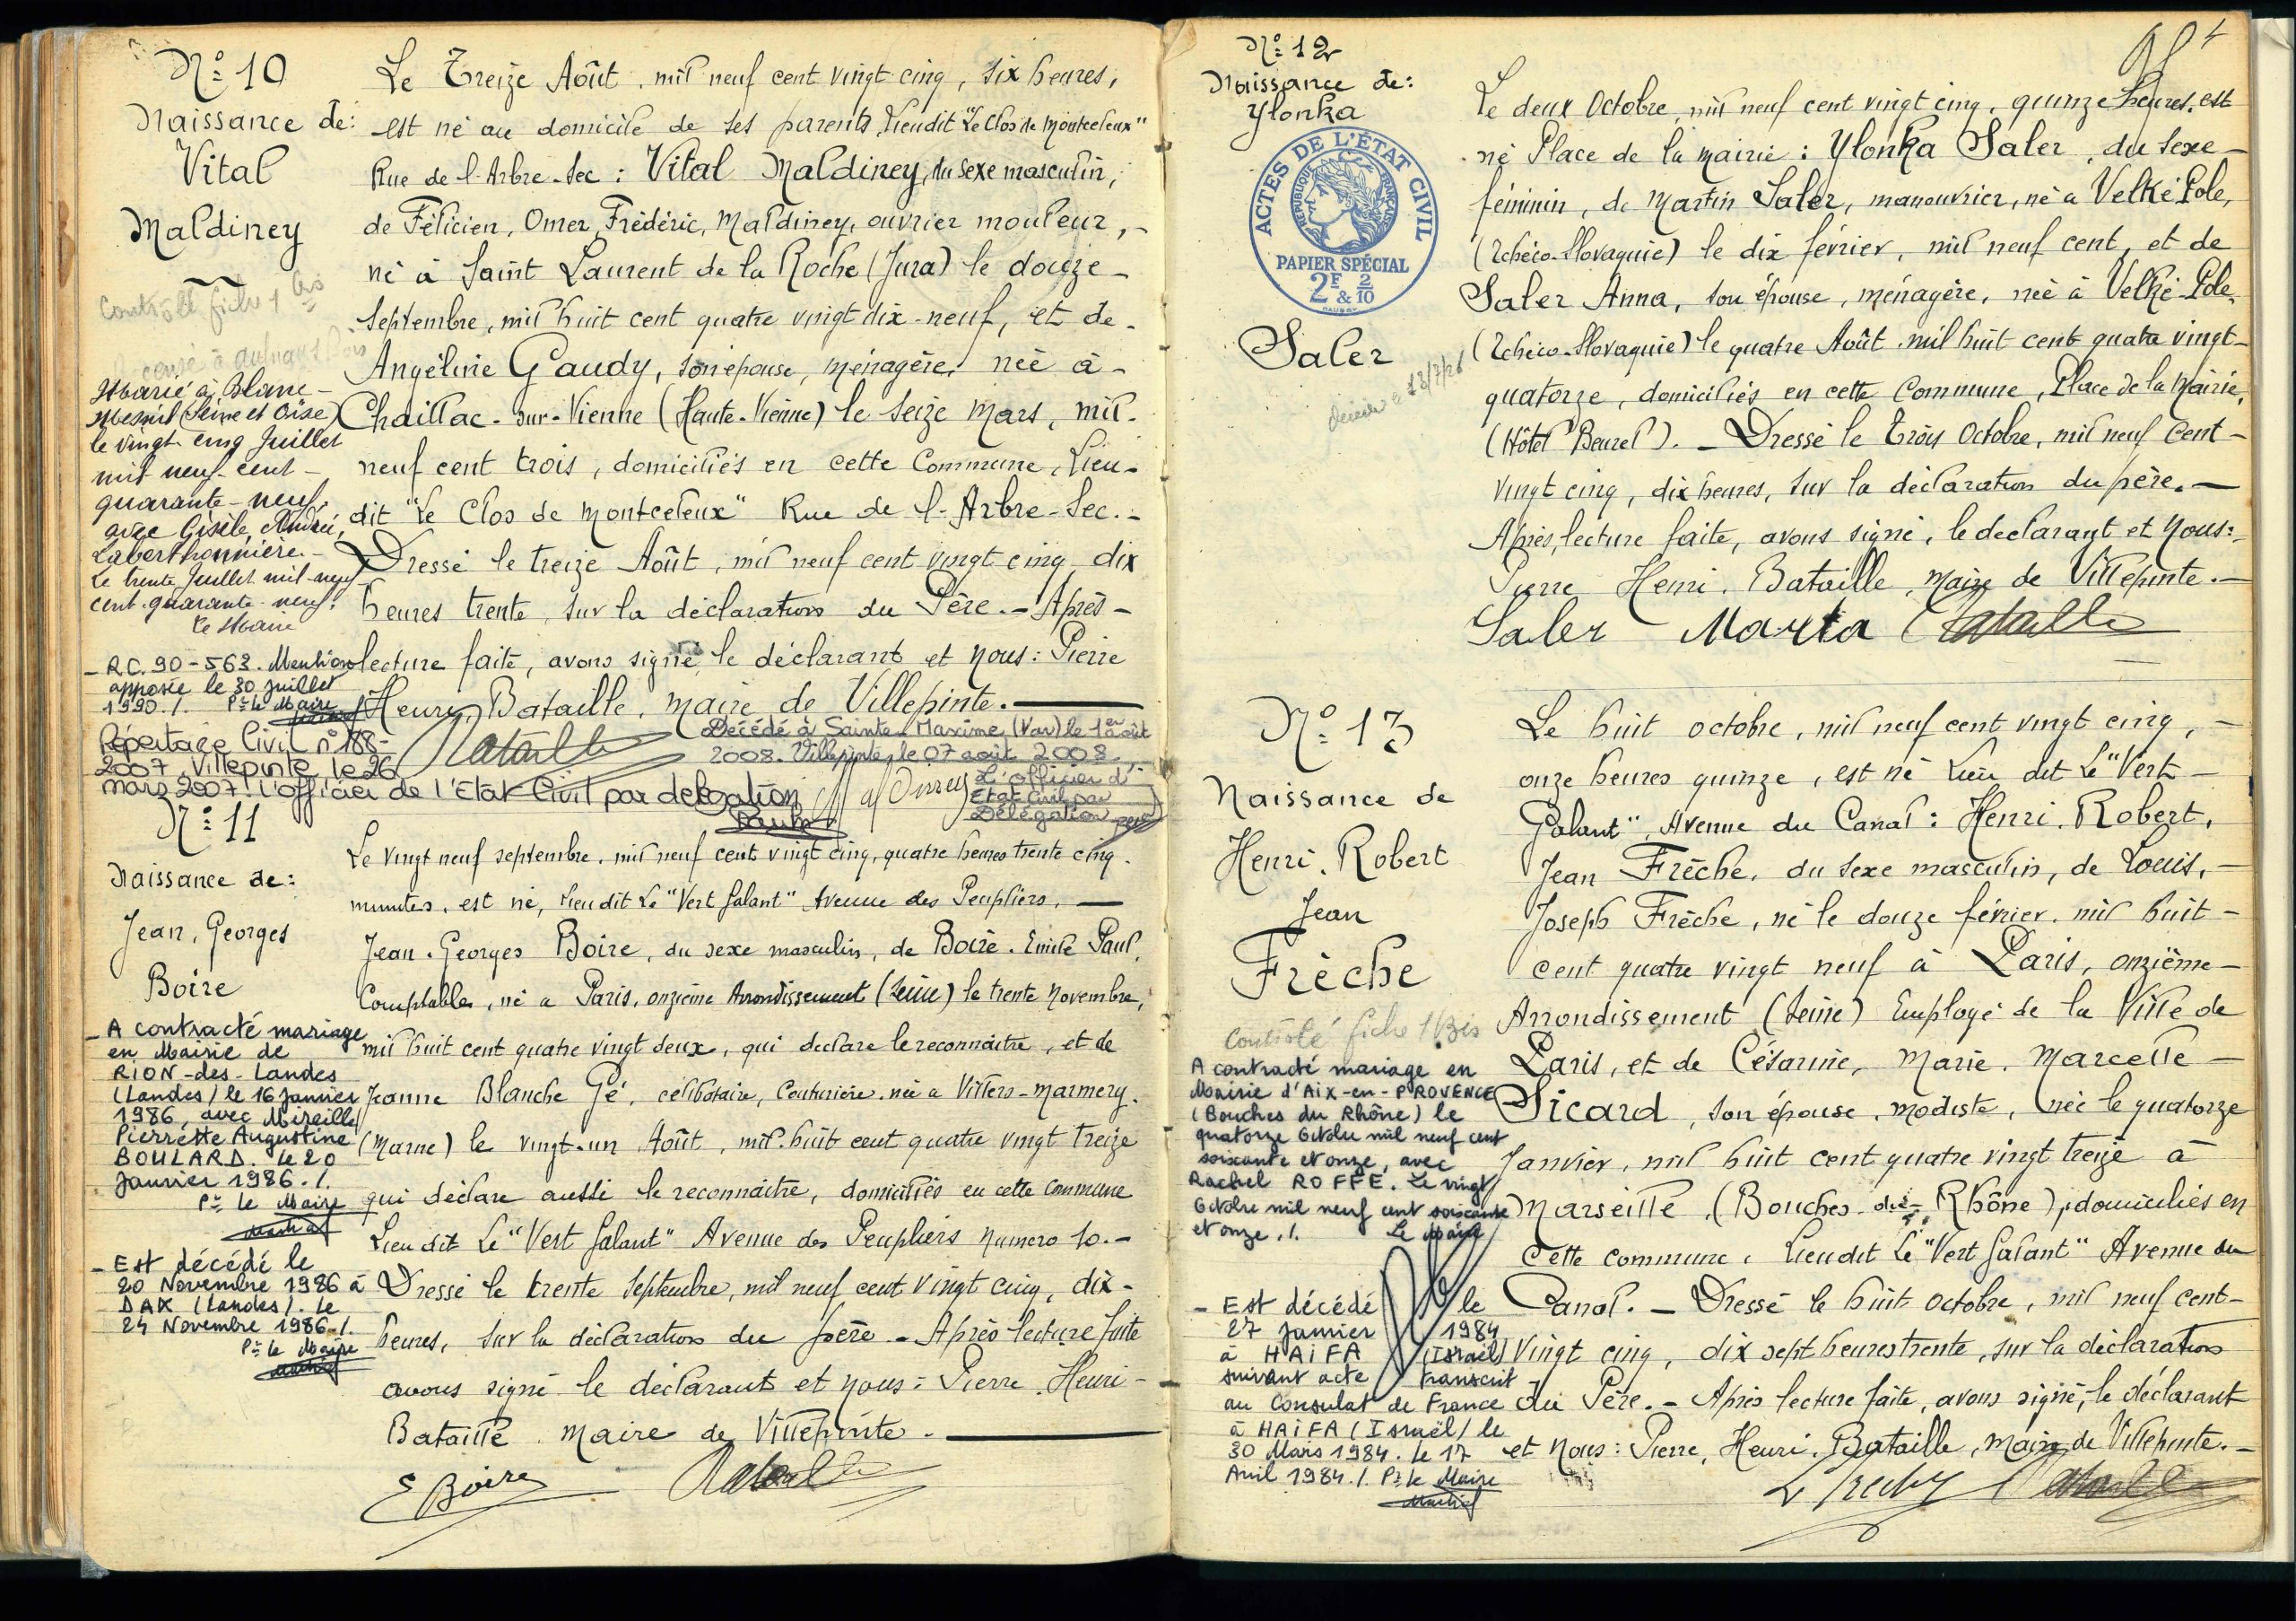 N° 10
Naissance de:
Vital
Maldiney
Contrôlé fiche 1 bis
Marié à Blanc-
Mesnil (Seine et Oise)
le vingt-cinq Juillet
mil neuf-cent-
quarante-neuf,
avec Gisèle, Andrée,
Laberthonnière.-
Le trente Juillet mil-neuf
cent-quarante-neuf.
Le Maire
- R.C. 90-563. Mention
apposée le 30 juillet
1990./. Pr le Maire
Répertoire Civil n° 188-
2007 Villepinte, le 26
mars 2007. L'officier de l'Etat Civil par délégation
Le Treize Août, mil neuf cent vingt-cinq, six heures,
est né au domicile de ses parents, Lieudit "Le Clos de Montceleux"
Rue de l'Arbre-Sec : Vital Maldiney, du sexe masculin,
de Félicien, Omer, Frédéric, Maldiney, ouvrier mouleur,-
né à Saint Laurent de la Roche (Jura) le douze-
Septembre, mil huit cent quatre vingt dix-neuf, et de-
Angéline Gaudy, son épouse, ménagère, née à-
Chaillac-sur-Vienne (Haute-Vienne) le seize Mars, mil-
neuf cent trois, domiciliés en cette Commune, Lieu-
dit "Le Clos de Montceleux" Rue de l'Arbre-Sec.-
Dressé le treize Août, mil neuf cent vingt cinq, dix
heures trente, sur la déclaration du Père.- Après-
lecture faite, avons signé le déclarant et Nous: Pierre
Henri, Bataille, maire de Villepinte.-
Décédé à Sainte-Maxime (Var) le 1er août
2008. Villepinte, le 07 août 2008
L'officier d'
Etat Civil par
Délégation
N° 11
Naissance de:
Jean, Georges
Boire
- A contracté mariage
en Mairie de
RION-des-Landes
(Landes) le 16 janvier
1986, avec Mireille
Pierrette Augustine
BOULARD. Le 20
Janvier 1986./.
Pr le Maire
- Est décédé le
20 Novembre 1986 à
DAX (Landes). Le
24 Novembre 1986./.
Pr le Maire
Le vingt neuf septembre, mil neuf cent vingt cinq, quatre heures trente cinq
minutes, est né, Lieudit Le "Vert Galant" Avenue des Peupliers,-
Jean-Georges Boire, du sexe masculin, de Boire. Emile Paul,
Comptable, né à Paris, onzième Arrondissement (Seine) le trente Novembre,
mil huit cent quatre vingt deux, qui déclare le reconnaître, et de
Jeanne Blanche Gé, célibataire, Couturière, née à Villers-Marmery.
(Marne) le vingt-un Août, mil-huit cent quatre vingt treize
qui déclare aussi le reconnaître, domiciliés en cette commune
Lieu dit Le "Vert Galant" Avenue des Peupliers numéro 10.-
Dressé le trente Septembre, mil neuf cent vingt cinq, dix-
heures, sur la déclaration du père.- Après lecture faite
avons signé le déclarant et nous: Pierre. Henri-
Bataille. Maire de Villepinte.-
E Boire Bataille
N° 12
Naissance de:
Ylonka
ACTES DE L'ÉTAT CIVIL
RÉPUBLIQUE FRANÇAISE
PAPIER SPÉCIAL
2F & 2/10
Saler
Décédée le 13/7/26
Le deux Octobre, mil neuf cent vingt cinq, quinze heures, est
né Place de la Mairie : Ylonka Saler, du sexe-
féminin, de Martin Saler, manouvrier, né à Velké Pole,
(Tchéco-Slovaquie) le dix février, mil neuf cent, et de
Saler Anna, son épouse, ménagère, née à Velké-Pole,
(Tchéco-Slovaquie) le quatre Août mil huit cent quatre vingt-
quatorze, domiciliés en cette Commune, Place de la Mairie,
(Hôtel Beurel).- Dressé le Trois Octobre, mil neuf cent-
vingt cinq, dix heures, sur la déclaration du père.-
Après, lecture faite, avons signé, le déclarant et Nous:-
Pierre Henri. Bataille, Maire de Villepinte.-
Saler Martin Bataille
N° 13
Naissance de
Henri. Robert
Jean
Frèche
Contrôlé fiche 1 Bis
A contracté mariage en
Mairie d'AiX-en-PROVENCE
(Bouches du Rhône) le
quatorze Octobre mil neuf cent
soixante et onze, avec
Rachel ROFFE. Le vingt
Octobre mil neuf cent soixante
et onze./. Le Maire
- Est décédé le
27 janvier 1984
à HAiFA (Israël)
suivant acte transcrit
au Consulat de France
à HAiFA (Israël) le
30 Mars 1984. Le 17
Avril 1984./. Pr le Maire
Le huit octobre, mil neuf cent vingt cinq,-
onze heures quinze, est né Lieu dit Le "Vert-
Galant", Avenue du Canal : Henri. Robert,
Jean Frèche, du sexe masculin, de Louis,-
Joseph Frèche, né le douze février, mil huit-
cent quatre vingt neuf à Paris, onzième-
Arrondissement (Seine) Employé de la Ville de
Paris, et de Césarine, Marie. Marcelle-
Sicard, son épouse, modiste, née le quatorze
Janvier, mil huit cent quatre vingt treize à
Marseille, (Bouches-du-Rhône), domiciliés en
cette commune, Lieudit Le "Vert Galant" Avenue du
Canal.- Dressé le huit Octobre, mil neuf cent-
Vingt cinq, dix sept heures trente, sur la déclaration
du Père.- Après lecture faite, avons signé, le déclarant
et Nous: Pierre, Henri. Bataille, Maire de Villepinte.-
L Frèche Bataille